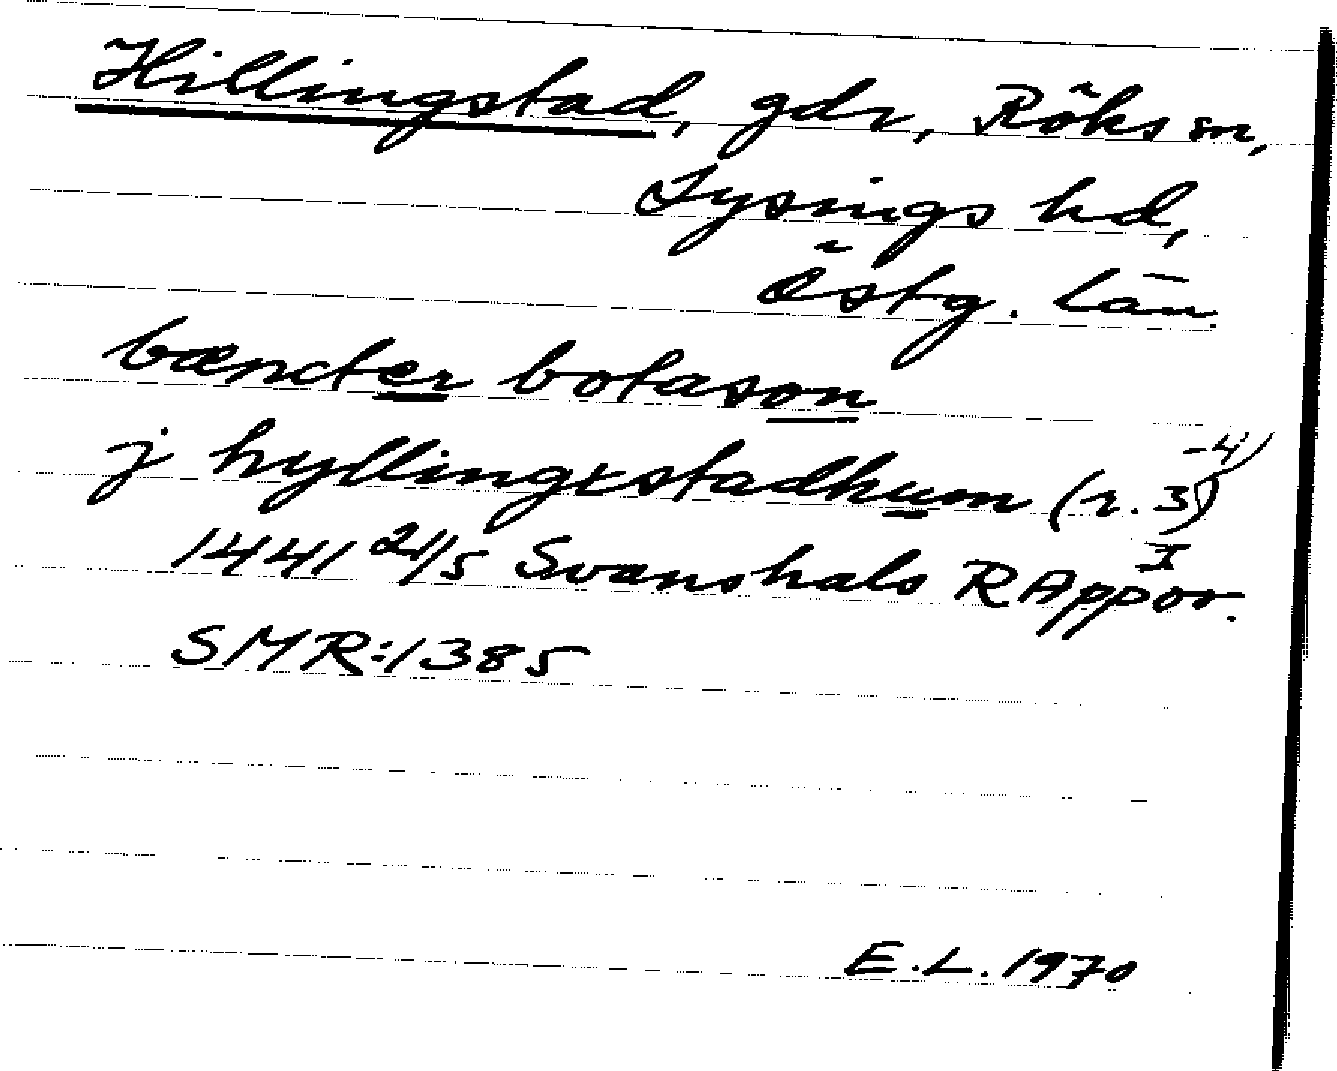 Hillingstad, gdr, Röks sn,
Lysings hd,
Östg. län.
bæncter botason
j hyllingxstadhum (r. 3-4)
1441 21/5 Svanshals RAppor. I
SMR:1385
E.L. 1970